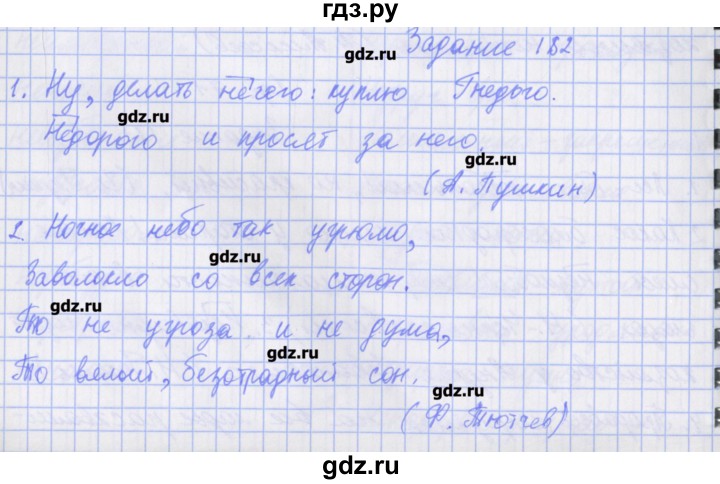 гдз.ру
Задание 182
gdz.ru
1. Ну, делать нечего: куплю Гнедого.
gdz.ru
Недорого и просят за него.
gdz.ru
(А. Пушкин)
2. Ночное небо так угрюмо,
gdz.ru
Заволокло со всех сторон.
gdz.ru
То не угроза и не дума,
gdz.ru
То вялый, безотрадный сон.
gdz.ru
(Ф. Тютчев)
gdz.ru